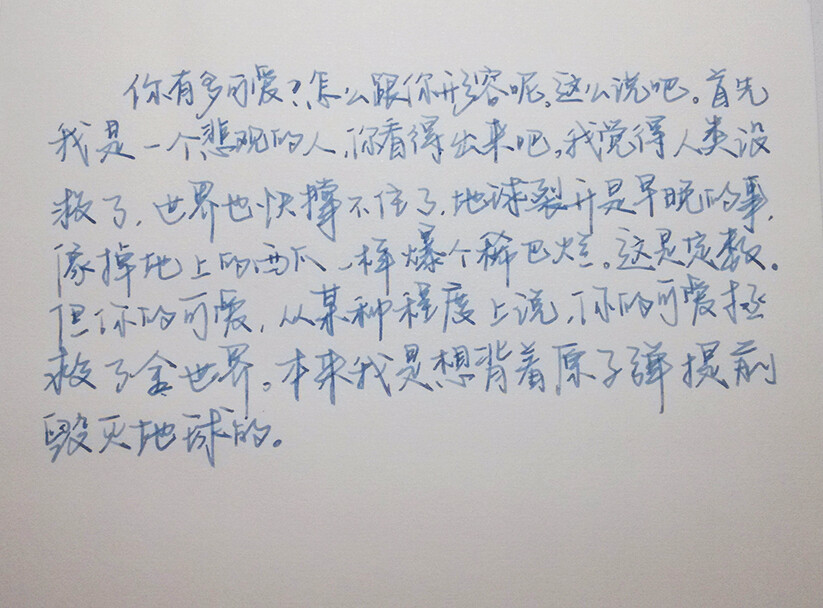 你有多可爱?怎么跟你形容呢。这么说吧。首先
我是一个悲观的人,你看得出来吧,我觉得人类没
救了,世界也快撑不住了,地球裂开是早晚的事,
像掉地上的西瓜一样爆个稀巴烂。这是定数。
但你的可爱,从某种程度上说,你的可爱拯
救了全世界。本来我是想背着原子弹提前
毁灭地球的。